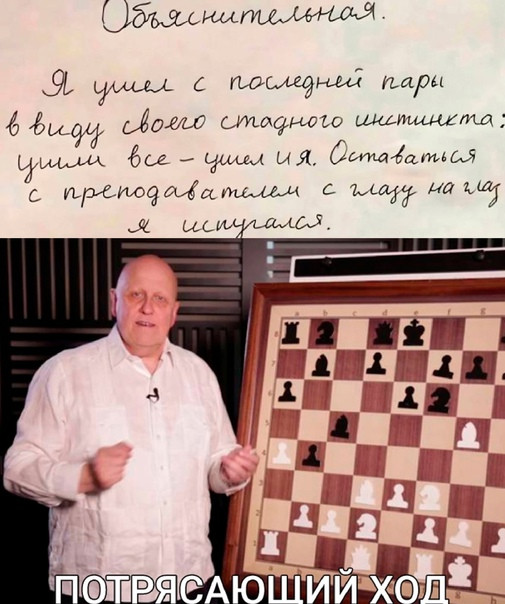 Объяснительная.
Я ушел с последней пары
в виду своего стадного инстинкта:
ушли все – ушел и я. Оставаться
с преподавателем с глазу на глаз
я испугался.
a b c d e f g
8
7
6
5
4
3
2
1
ПОТРЯСАЮЩИЙ ХОД